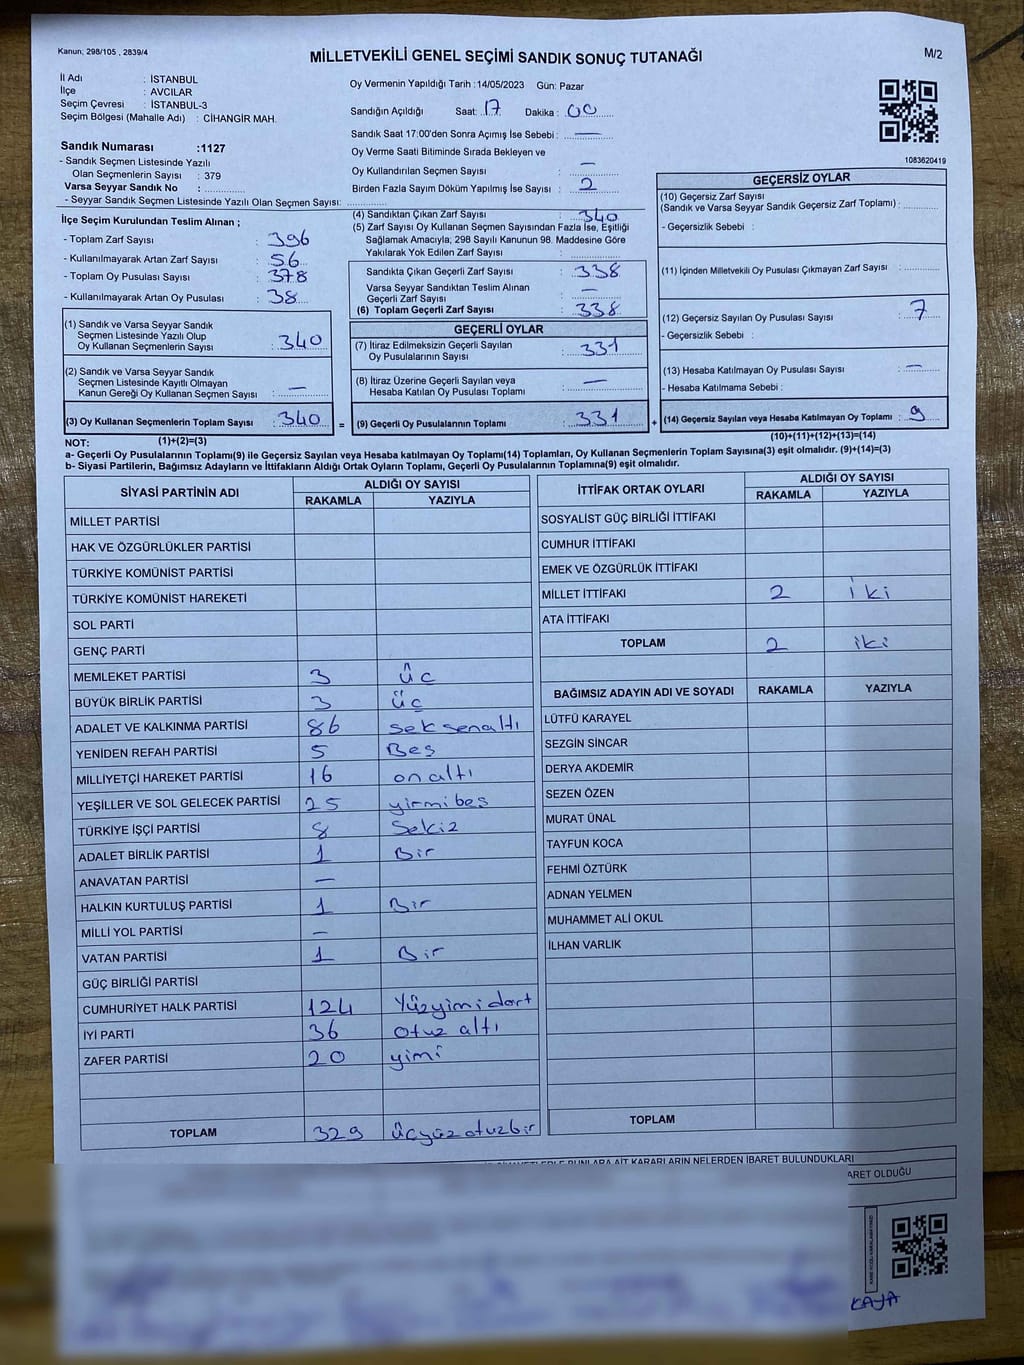 Kanun; 298/105 , 2839/4
MİLLETVEKİLİ GENEL SEÇİMİ SANDIK SONUÇ TUTANAĞI
M/2
İl Adı : İSTANBUL
İlçe : AVCILAR
Seçim Çevresi : İSTANBUL-3
Seçim Bölgesi (Mahalle Adı) : CİHANGİR MAH.
Oy Vermenin Yapıldığı Tarih : 14/05/2023 Gün: Pazar
Sandığın Açıldığı Saat: 17 Dakika : 00
Sandık Saat 17:00'den Sonra Açımış İse Sebebi : —
Oy Verme Saati Bitiminde Sırada Bekleyen ve
Oy Kullandırılan Seçmen Sayısı : —
Birden Fazla Sayım Döküm Yapılmış İse Sayısı : 2
1083620419
Sandık Numarası :1127
- Sandık Seçmen Listesinde Yazılı
Olan Seçmenlerin Sayısı : 379
Varsa Seyyar Sandık No :
- Seyyar Sandık Seçmen Listesinde Yazılı Olan Seçmen Sayısı:
İlçe Seçim Kurulundan Teslim Alınan ;
- Toplam Zarf Sayısı : 396
- Kullanılmayarak Artan Zarf Sayısı : 56
- Toplam Oy Pusulası Sayısı : 378
- Kullanılmayarak Artan Oy Pusulası : 38
(1) Sandık ve Varsa Seyyar Sandık
Seçmen Listesinde Yazılı Olup
Oy Kullanan Seçmenlerin Sayısı : 340
(2) Sandık ve Varsa Seyyar Sandık
Seçmen Listesinde Kayıtlı Olmayan
Kanun Gereği Oy Kullanan Seçmen Sayısı : —
(3) Oy Kullanan Seçmenlerin Toplam Sayısı : 340 =
(1)+(2)=(3)
(4) Sandıktan Çıkan Zarf Sayısı : 340
(5) Zarf Sayısı Oy Kullanan Seçmen Sayısından Fazla İse, Eşitliği
Sağlamak Amacıyla; 298 Sayılı Kanunun 98. Maddesine Göre
Yakılarak Yok Edilen Zarf Sayısı :
Sandıkta Çıkan Geçerli Zarf Sayısı : 338
Varsa Seyyar Sandıktan Teslim Alınan
Geçerli Zarf Sayısı : —
(6) Toplam Geçerli Zarf Sayısı : 338
GEÇERLİ OYLAR
(7) İtiraz Edilmeksizin Geçerli Sayılan
Oy Pusulalarının Sayısı : 331
(8) İtiraz Üzerine Geçerli Sayılan veya
Hesaba Katılan Oy Pusulası Toplamı : —
(9) Geçerli Oy Pusulalarının Toplamı : 331 +
GEÇERSİZ OYLAR
(10) Geçersiz Zarf Sayısı
(Sandık ve Varsa Seyyar Sandık Geçersiz Zarf Toplamı) :
- Geçersizlik Sebebi :
(11) İçinden Milletvekili Oy Pusulası Çıkmayan Zarf Sayısı :
(12) Geçersiz Sayılan Oy Pusulası Sayısı : 7
- Geçersizlik Sebebi :
(13) Hesaba Katılmayan Oy Pusulası Sayısı : —
- Hesaba Katılmama Sebebi :
(14) Geçersiz Sayılan veya Hesaba Katılmayan Oy Toplamı : 9
(10)+(11)+(12)+(13)=(14)
NOT:
a- Geçerli Oy Pusulalarının Toplamı(9) ile Geçersiz Sayılan veya Hesaba katılmayan Oy Toplamı(14) Toplamları, Oy Kullanan Seçmenlerin Toplam Sayısına(3) eşit olmalıdır. (9)+(14)=(3)
b- Siyasi Partilerin, Bağımsız Adayların ve İttifakların Aldığı Ortak Oyların Toplamı, Geçerli Oy Pusulalarının Toplamına(9) eşit olmalıdır.
SİYASİ PARTİNİN ADI ALDIĞI OY SAYISI
RAKAMLA YAZIYLA
MİLLET PARTİSİ
HAK VE ÖZGÜRLÜKLER PARTİSİ
TÜRKİYE KOMÜNİST PARTİSİ
TÜRKİYE KOMÜNİST HAREKETİ
SOL PARTİ
GENÇ PARTİ
MEMLEKET PARTİSİ 3 üc
BÜYÜK BİRLİK PARTİSİ 3 üç
ADALET VE KALKINMA PARTİSİ 86 seksenaltı
YENİDEN REFAH PARTİSİ 5 Bes
MİLLİYETÇİ HAREKET PARTİSİ 16 onaltı
YEŞİLLER VE SOL GELECEK PARTİSİ 25 yirmibes
TÜRKİYE İŞÇİ PARTİSİ 8 Sekiz
ADALET BİRLİK PARTİSİ 1 Bir
ANAVATAN PARTİSİ —
HALKIN KURTULUŞ PARTİSİ 1 Bir
MİLLİ YOL PARTİSİ —
VATAN PARTİSİ 1 Bir
GÜÇ BİRLİĞİ PARTİSİ
CUMHURİYET HALK PARTİSİ 124 Yüzyimidört
İYİ PARTİ 36 otuz altı
ZAFER PARTİSİ 20 yimi
TOPLAM 329 üçyüzotuzbir
İTTİFAK ORTAK OYLARI ALDIĞI OY SAYISI
RAKAMLA YAZIYLA
SOSYALİST GÜÇ BİRLİĞİ İTTİFAKI
CUMHUR İTTİFAKI
EMEK VE ÖZGÜRLÜK İTTİFAKI
MİLLET İTTİFAKI 2 iki
ATA İTTİFAKI
TOPLAM 2 iki
BAĞIMSIZ ADAYIN ADI VE SOYADI RAKAMLA YAZIYLA
LÜTFÜ KARAYEL
SEZGİN SİNCAR
DERYA AKDEMİR
SEZEN ÖZEN
MURAT ÜNAL
TAYFUN KOCA
FEHMİ ÖZTÜRK
ADNAN YELMEN
MUHAMMET ALİ OKUL
İLHAN VARLIK
TOPLAM
BUNLARA AİT KARARLARIN NELERDEN İBARET BULUNDUKLARI
ARET OLDUĞU
KAYA